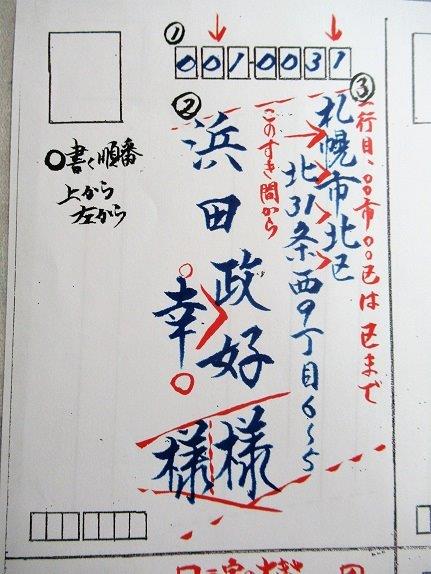 ①
001-0031
③
一行目、〇〇市〇〇区は区まで
札幌市北区
北31条西9丁目6-5
このすき間から
②
浜田政好様
幸様
〇書く順番
上から
左から